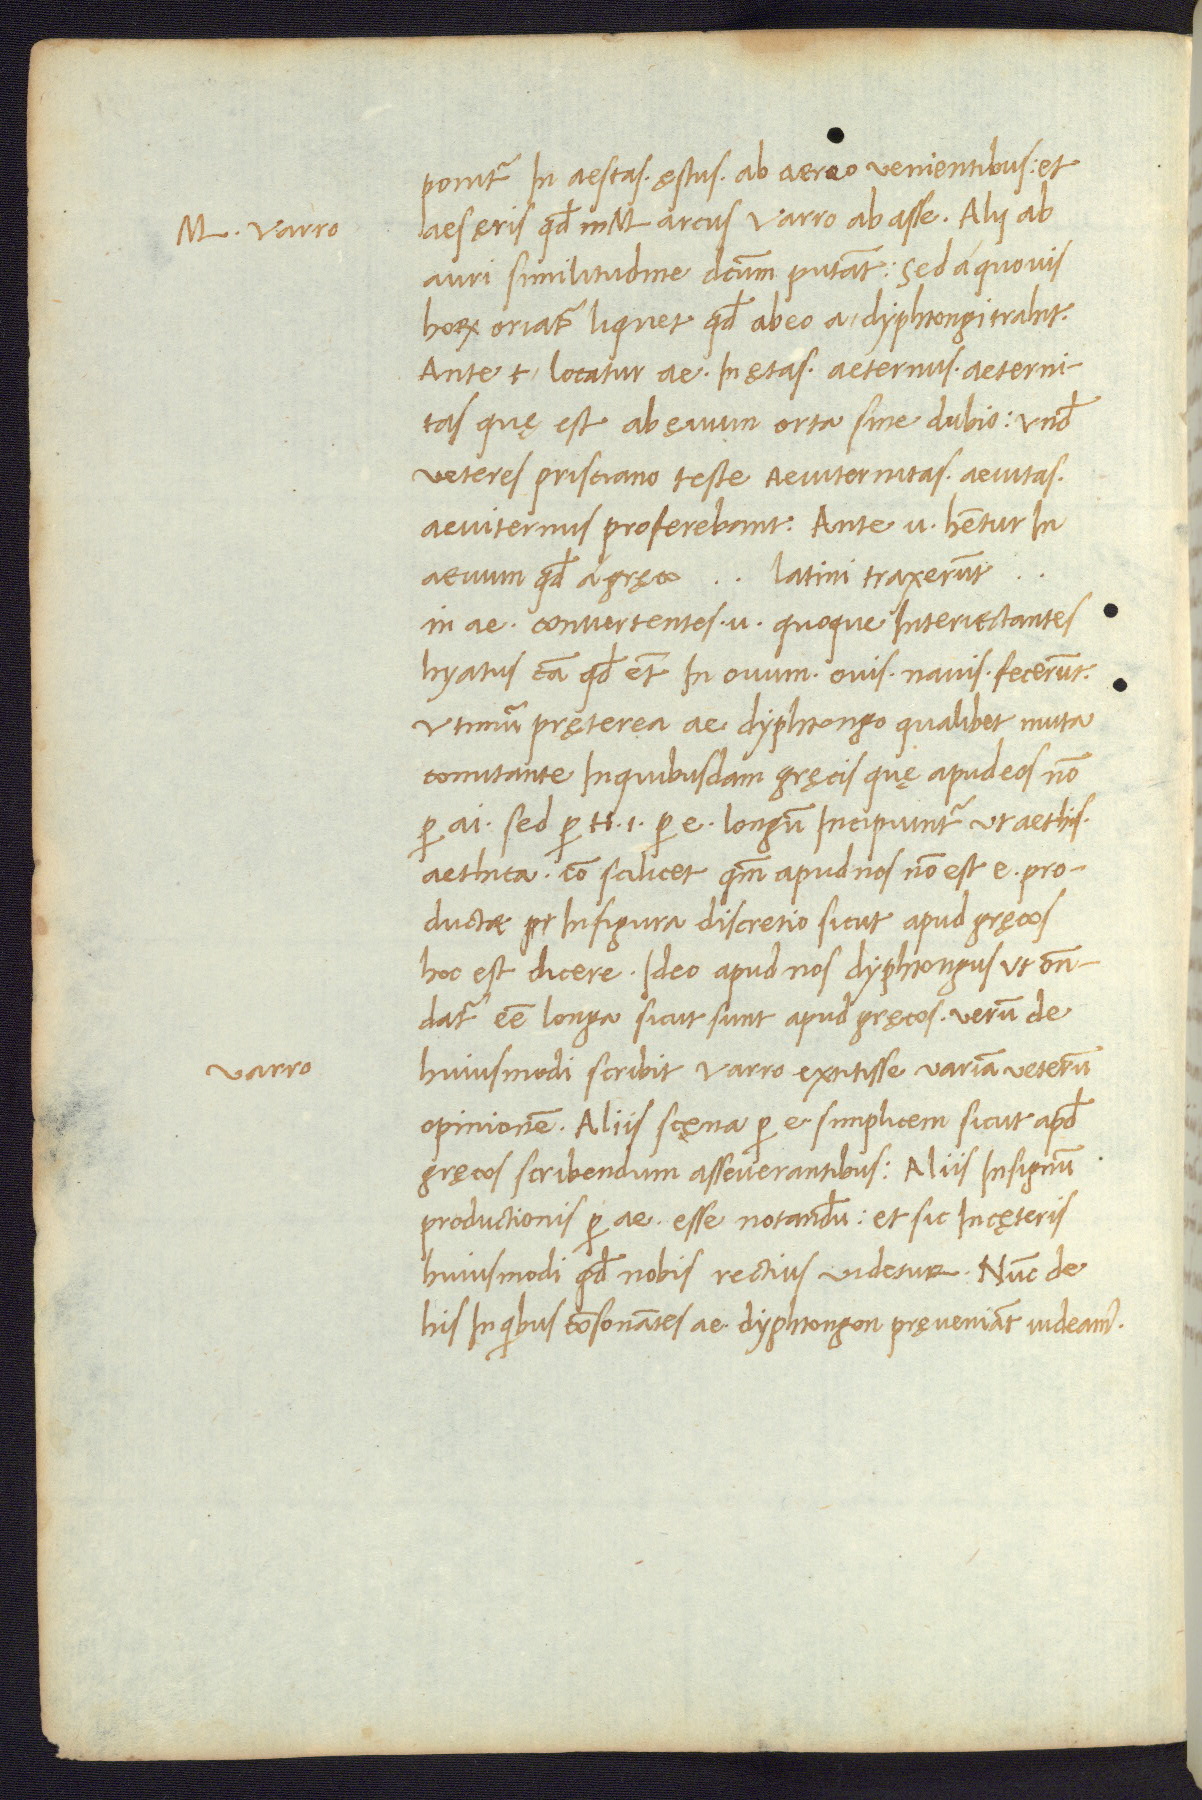 ponit᷑ In aestas. ęstus. ab aereo venientibus: et
M. Varro
aes ęris qđ mM arcus Varro ab asse. Alij ab
auri similitudine dcūm putāt: sed á quouis
hoꝝ oriat᷑ liquet qđ ab eo a dyphtongi trahit.
Ante t locatur ae. In ętas. aeternus. aeterni-
tas quę est ab ęuum orta sine dubio: vnđ
veteres prisciano teste Aeuiternitas. aeuitas.
aeuiternus proferebant: Ante u. hētur In
aeuum qđ á gręco . . latini traxerūt . .
in ae. conuertentes. u. quoque Interiectantes
hyatus cā qđ et̄ In ouum. ouis. nauis. fecerūt.
Vtimur̄ pręterea ae dyphtongo qualibet muta
comitante In quibusdam gręcis quę apud eos nō
ꝑ ai. sed ꝑ H. 1. ꝑ e. longū Incipiunt᷑ vt aethis.
aethica. eō scilicet qm̄ apud nos nō est e. pro-
ductae In figura discretio sicut apud gręcos
hoc est dicere. Ideo apud nos dyphtongus vt ōn-
dat᷑ eē longa sicut sunt apud gręcos. verū de
Varro
huiusmodi scribit Varro extitisse variā veterū
opinionē. Aliis scęna ꝑ e. simplicem sicut apđ
gręcos scribendum asseuerantibus: Aliis In signū
productionis ꝑ ae. esse notandū: et sic In cęteris
huiusmodi qđ nobis rectius videtur. Nūc de
his In qͥbus cōsonātes ae. dyphtongon pręueniāt uideam᷒.